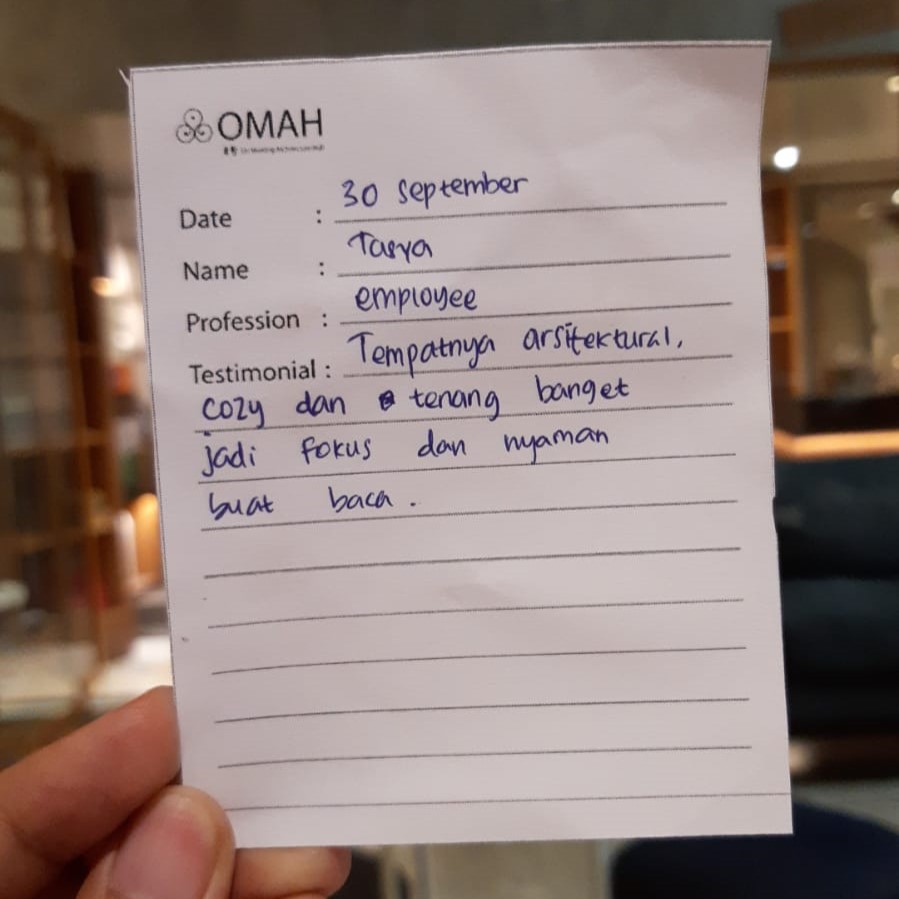 OMAH
Date : 30 September
Name : Tasya
Profession : employee
Testimonial : Tempatnya arsitektural,
cozy dan tenang banget
jadi fokus dan nyaman
buat baca.